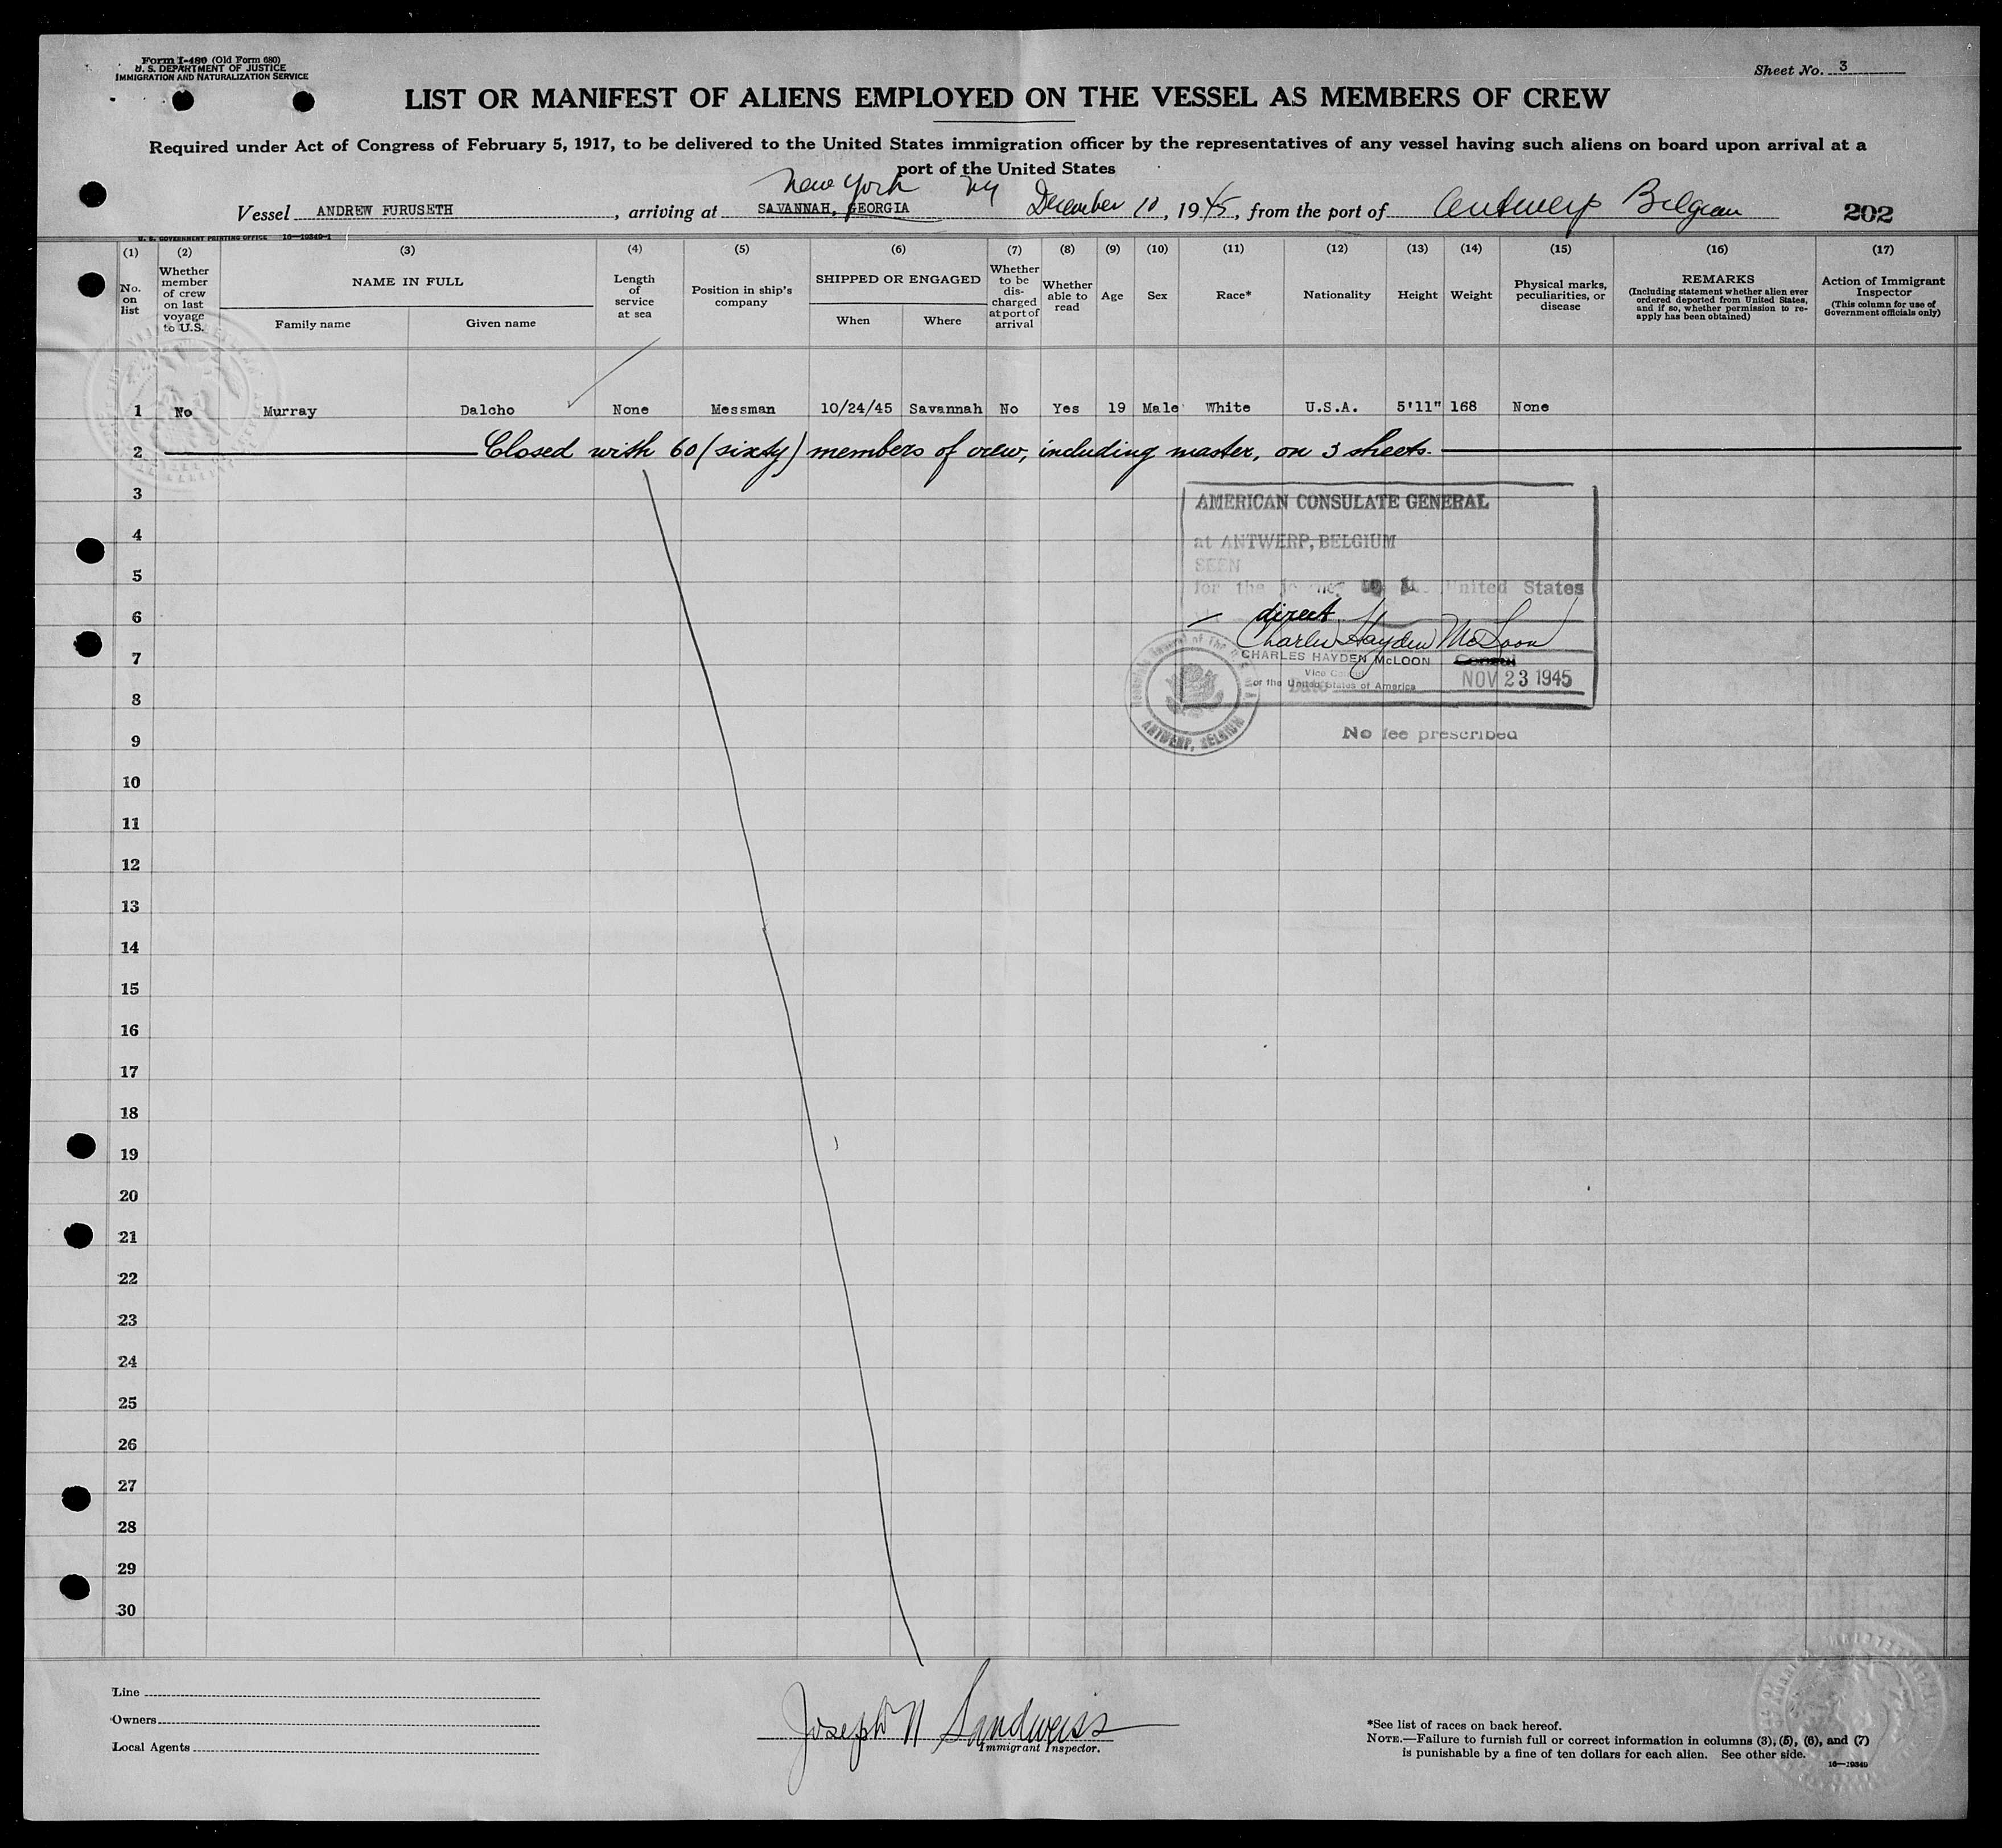 Form I-480 (Old Form 680)
U. S. DEPARTMENT OF JUSTICE
IMMIGRATION AND NATURALIZATION SERVICE
Sheet No. 3
LIST OR MANIFEST OF ALIENS EMPLOYED ON THE VESSEL AS MEMBERS OF CREW
Required under Act of Congress of February 5, 1917, to be delivered to the United States immigration officer by the representatives of any vessel having such aliens on board upon arrival at a
port of the United States
New York NY
Vessel ANDREW FURUSETH, arriving at SAVANNAH, GEORGIA December 10, 1945, from the port of Antwerp Belgium 202
U. S. GOVERNMENT PRINTING OFFICE 16—19349-1
(1) (2) (3) (4) (5) (6) (7) (8) (9) (10) (11) (12) (13) (14) (15) (16) (17)
No. on list
Whether member of crew on last voyage to U.S.
NAME IN FULL
Family name Given name
Length of service at sea
Position in ship's company
SHIPPED OR ENGAGED
When Where
Whether to be discharged at port of arrival
Whether able to read
Age
Sex
Race*
Nationality
Height
Weight
Physical marks, peculiarities, or disease
REMARKS
(Including statement whether alien ever ordered deported from United States, and if so, whether permission to reapply has been obtained)
Action of Immigrant Inspector
(This column for use of Government officials only)
1 No Murray Dalcho None Messman 10/24/45 Savannah No Yes 19 Male White U.S.A. 5'11" 168 None
2 Closed with 60 (sixty) members of crew, including master, on 3 sheets.
3
AMERICAN CONSULATE GENERAL
4
at ANTWERP, BELGIUM
SEEN
5
for the United States
6
direct
Charles Hayden McLoon
7
CHARLES HAYDEN McLOON Consul
Vice Consul
of the United States of America
NOV 23 1945
8
ANTWERP, BELGIUM
9
No fee prescribed
10
11
12
13
14
15
16
17
18
19
20
21
22
23
24
25
26
27
28
29
30
Line
Owners
Local Agents
Joseph N Sandweiss
Immigrant Inspector.
*See list of races on back hereof.
NOTE.—Failure to furnish full or correct information in columns (3), (5), (6), and (7)
is punishable by a fine of ten dollars for each alien. See other side.
16—19349